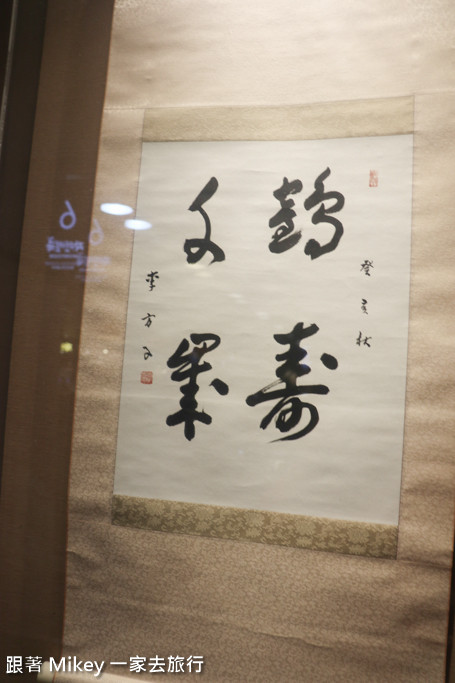 癸亥秋
鶴寿
千歲
李方子
跟著 Mikey 一家去旅行